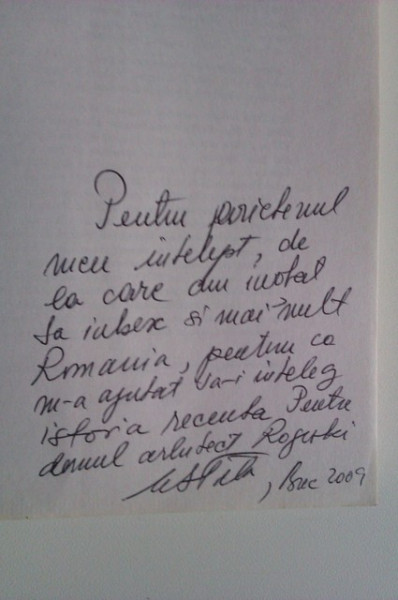 Pentru prietenul
meu intelept, de
la care am invatat
sa iubesc si mai mult
Romania, pentru ca
m-a ajutat sa-i inteleg
istoria recenta. Pentru
domnul arhitect
, Buc 2009